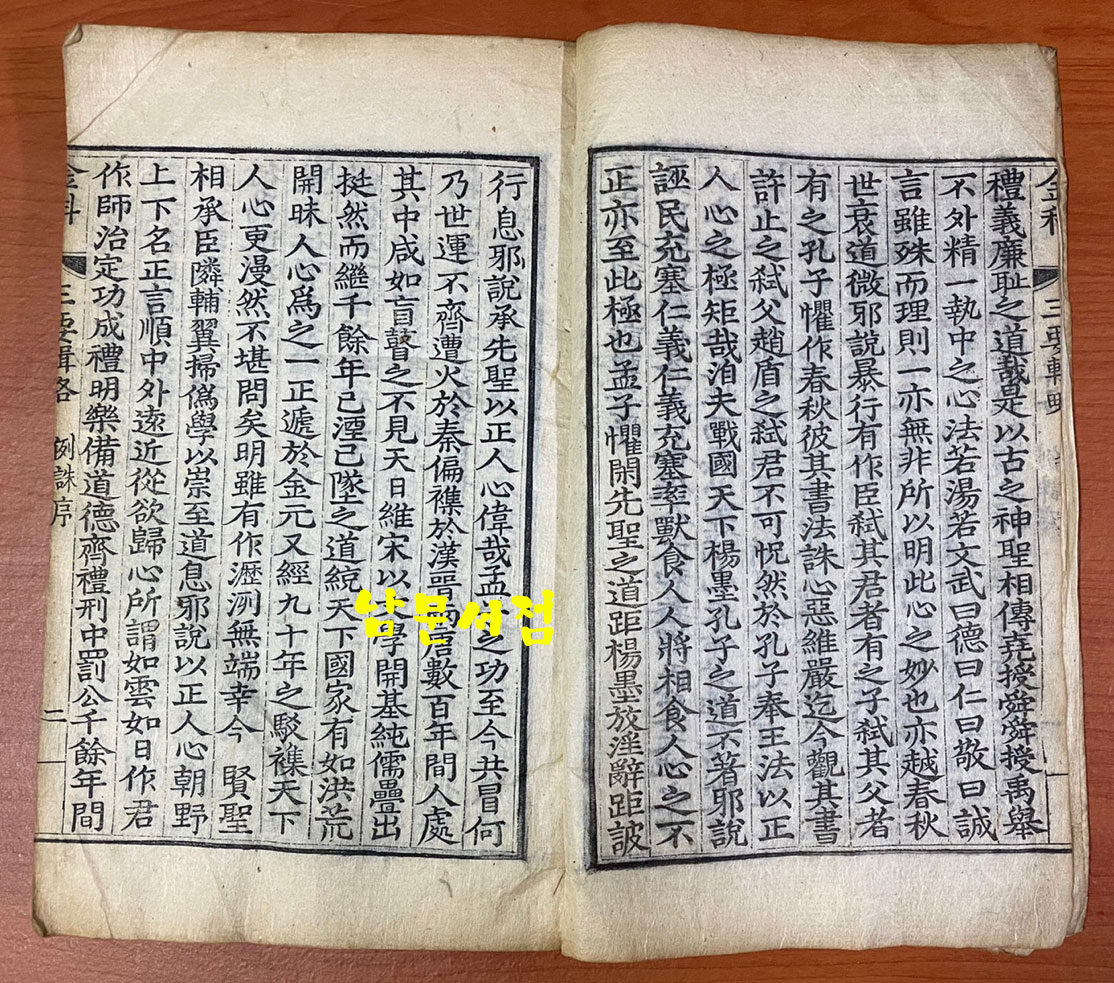 金科 三要輯略
禮義廉恥之道哉是以古之神聖相傳堯授舜舜授禹舉
不外精一執中之心法若湯若文武曰德曰仁曰敬曰誠
言雖殊而理則一亦無非所以明此心之妙也亦越春秋
世衰道微邪說暴行有作臣弑其君者有之子弑其父者
有之孔子懼作春秋彼其書法誅心惡維嚴迄今觀其書
許止之弑父趙盾之弑君不可怳然於孔子奉王法以正
人心之極矩哉洎夫戰國天下楊墨孔子之道不著邪說
誣民充塞仁義仁義充塞率獸食人人將相食人心之不
正亦至此極也孟子懼閑先聖之道距楊墨放淫辭距詖
行息邪說承先聖以正人心偉哉孟之功至今共冒何
乃世運不齊遭火於秦偏襍於漢晋而唐數百年間人處
其中咸如盲瞽之不見天日維宋以文學開基純儒疊出
挺然而繼千餘年已湮已墜之道統天下國家有如洪荒
開昧人心爲之一正遞於金元又經九十年之駁襍天下
人心更漫然不堪問矣明雖有作瀝洌無端幸今 賢聖
相承臣隣輔翼掃僞學以崇至道息邪說以正人心朝野
上下名正言順中外遠近從欲歸心所謂如雲如日作君
作師治定功成禮明樂備道德齊禮刑中罰公千餘年間
金科 三要輯略 例誅序 二
남문서점